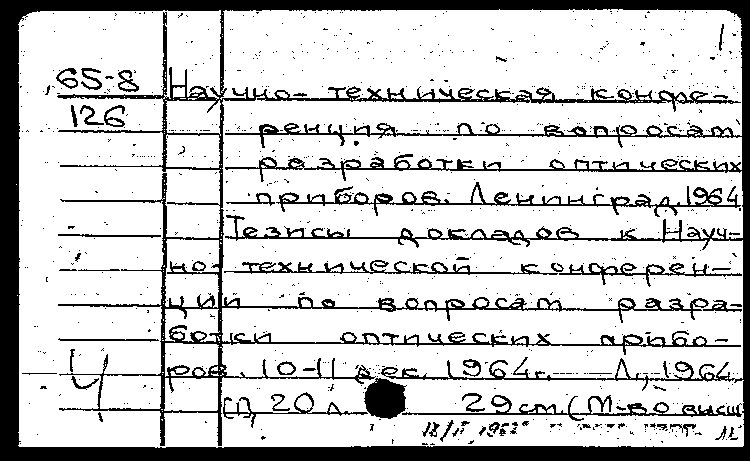 1.
65-8 Научно-техническая конфе-
126 ренция по вопросам
разработки оптических
приборов. Ленинград. 1964
Тезисы докладов к Науч-
но-технической конферен-
ции по вопросам разра-
ботки оптических прибо-
ров. 10-11 дек. 1964г. — Л., 1964
Ч
20 л. 29 см. (М-во высш